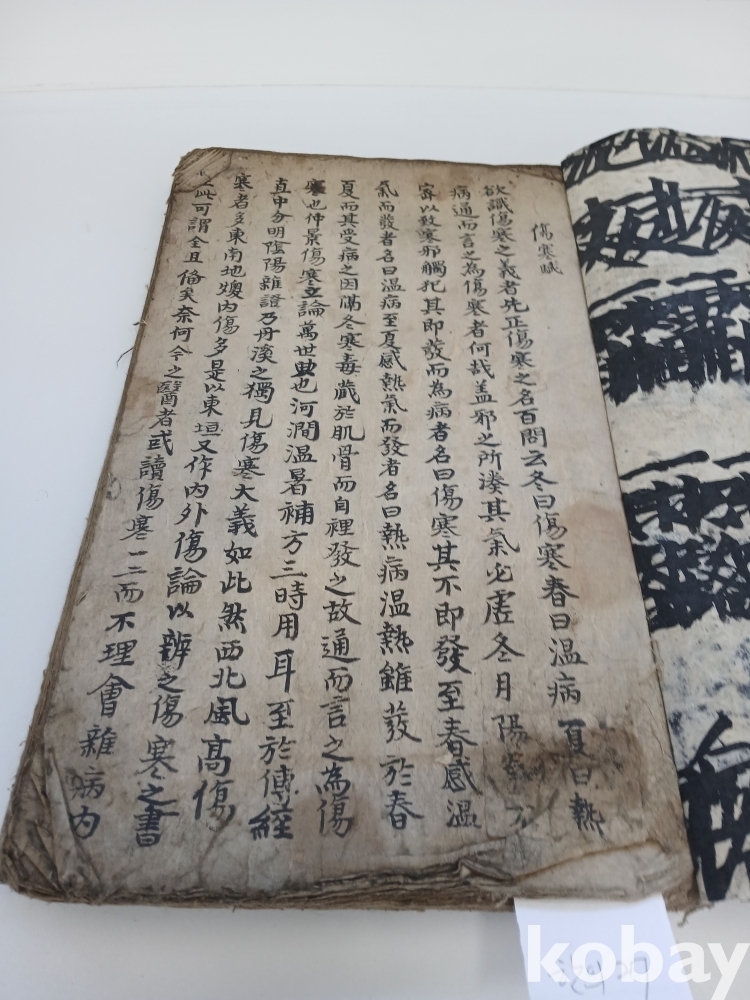 傷寒賦
欲識傷寒之義者先正傷寒之名百問云冬曰傷寒春曰溫病夏曰熱
病通而言之為傷寒者何哉盖邪之所湊其氣必虛冬月陽氣
寧以致寒邪觸犯其即發而為病者名曰傷寒其不即發至春感溫
氣而發者名曰溫病至夏感熱氣而發者名曰熱病溫熱雖發於春
夏而其受病之因隔冬寒毒藏於肌骨而自裡發之故通而言之為傷
寒也仲景傷寒立論萬世典也河澗溫暑補方三時用耳至於傳經
直中分明陰陽雜證乃丹溪之獨見傷寒大義如此然西北風高傷
寒者多東南地燠內傷多是以東垣又作內外傷論以辨之傷寒之書
此可謂全且俻矣奈何今之醫者或讀傷寒一二而不理會雜病內
kobay